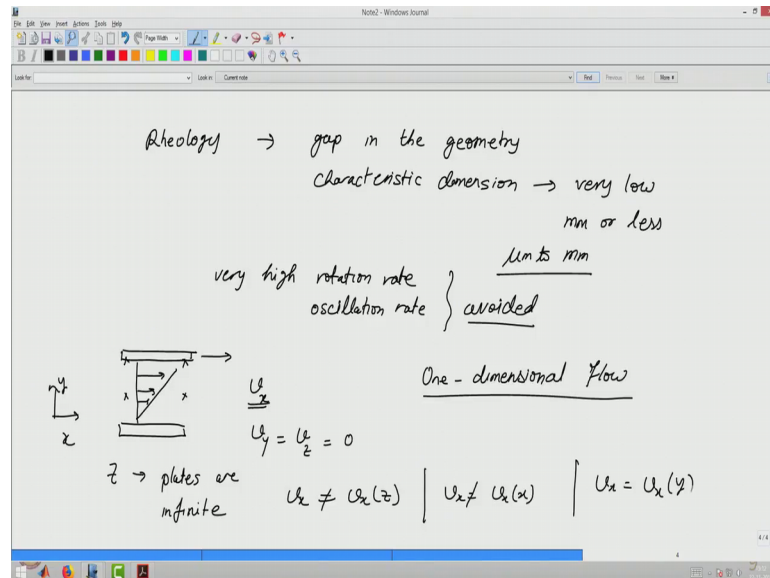 Note2 - Windows Journal
File Edit View Insert Actions Tools Help
Page Width
B I
Look for: Look in: Current note Find Previous Next More
Rheology → gap in the geometry
characteristic dimension → very low
mm or less
μm to mm
very high rotation rate
oscillation rate } avoided
One-dimensional Flow
y
x
υx
υy = υz = 0
z → plates are
infinite
υx ≠ υx(z) | υx ≠ υx(x) | υx = υx(y)
4/4
4